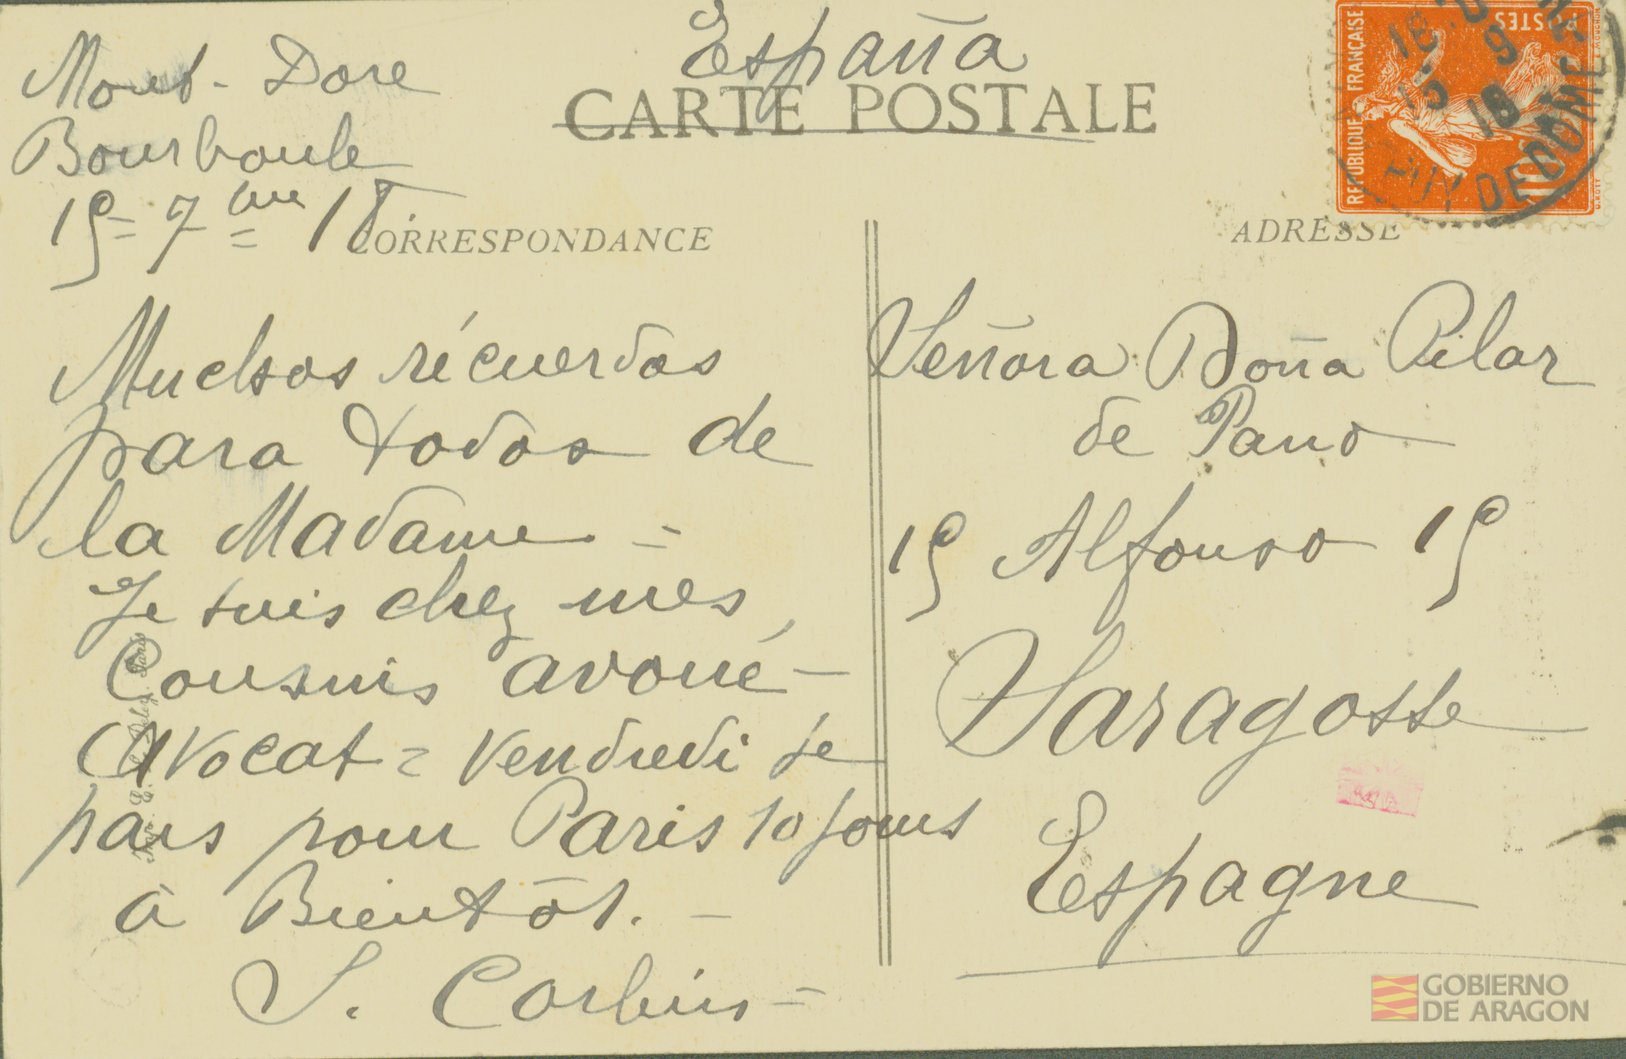 España
CARTE POSTALE
Mont-Dore
Bourboule
15= 7bre 18.
CORRESPONDANCE
Muchos récuerdos
para todos de
la Madame -
Je suis chez mes
Cousins avoué -
Avocat = Vendredi je
pars pour Paris 10 jours
à Bientôt. -
S. Corbins -
ADRESSE
Señora Doña Pilar
de Pano
15 Alfonso 15
Saragosse
Espagne
REPUBLIQUE FRANÇAISE
POSTES
PUY DE DOME
GOBIERNO
DE ARAGON